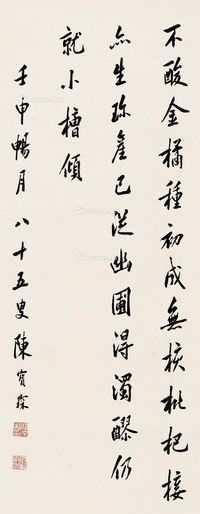 不酸金橘種初成無核枇杷接
亦生珍產已從幽圃得濁醪仍
就小槽傾
壬申暢月八十五叟陳寶琛